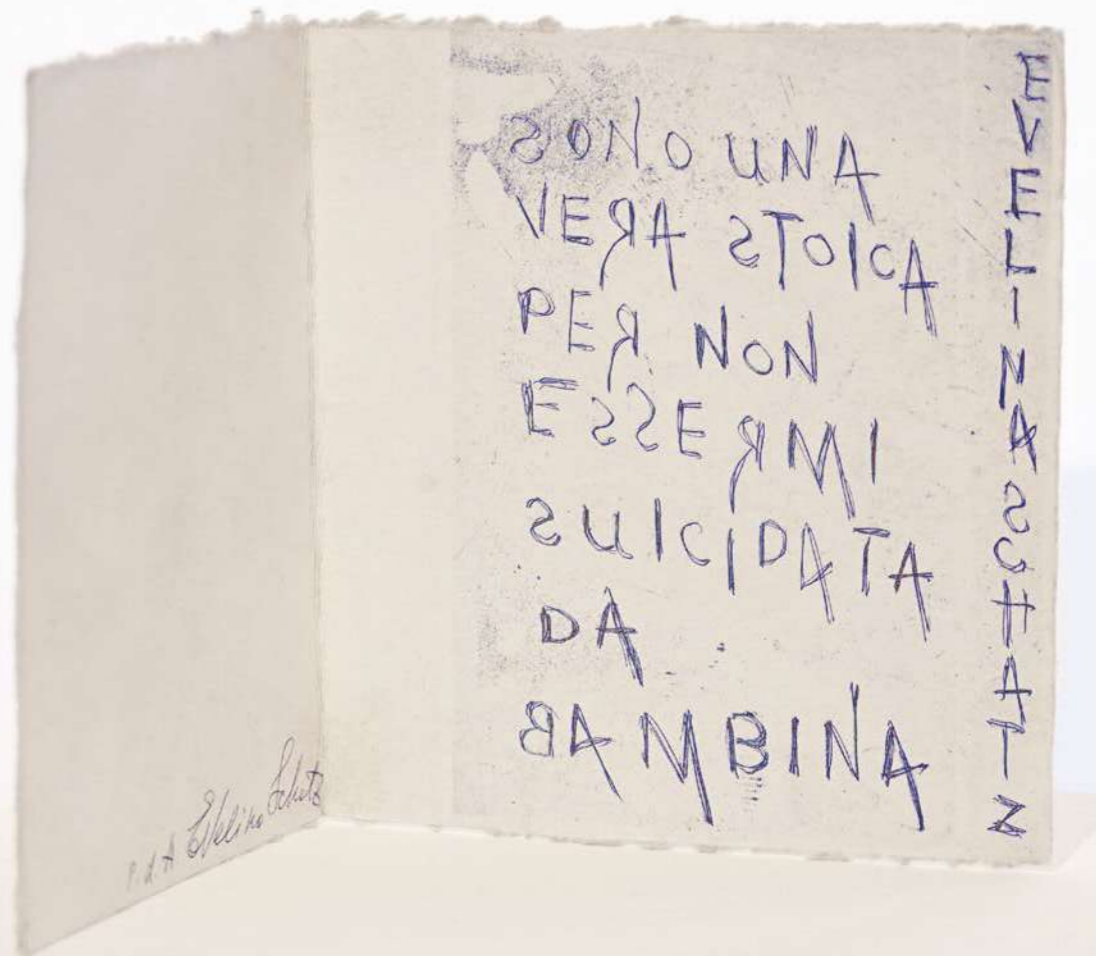 SONO UNA
VERA STOICA
PER NON
ESSERMI
SUICIDATA
DA
BAMBINA
EVELINA SCHATZ
P.d.A Evelina Schatz